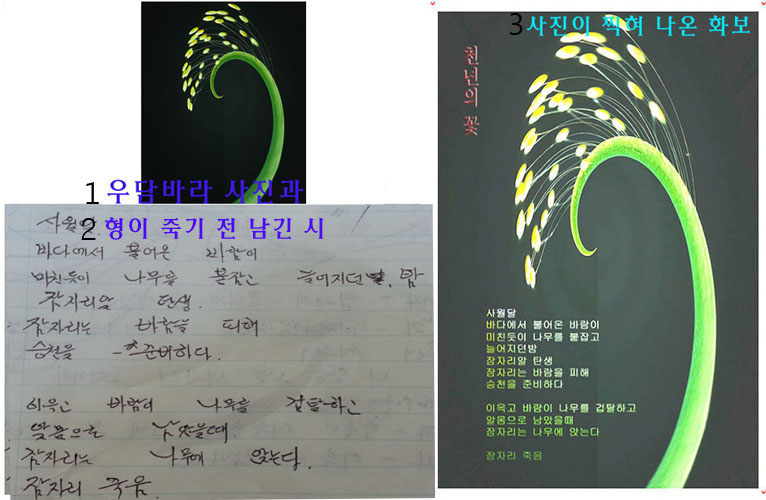 1 우담바라 사진과
2 형이 죽기 전 남긴 시
사월에
바다에서 불어온 바람이
미친듯이 나무를 붙잡고 늘어지던 밤
잠자리알 탄생.
잠자리는 바람을 피해
승천을 준비하다.
이윽고 바람이 나무를 겁탈하고
알몸으로 남았을때.
잠자리는 나무에 앉는다.
잠자리 죽음.
3 사진이 찍혀 나온 화보
천년의 꽃
사월달
바다에서 불어온 바람이
미친듯이 나무를 붙잡고
늘어지던밤
잠자리알 탄생
잠자리는 바람을 피해
승천을 준비하다
이윽고 바람이 나무를 겁탈하고
알몸으로 남았을때
잠자리는 나무에 앉는다
잠자리 죽음